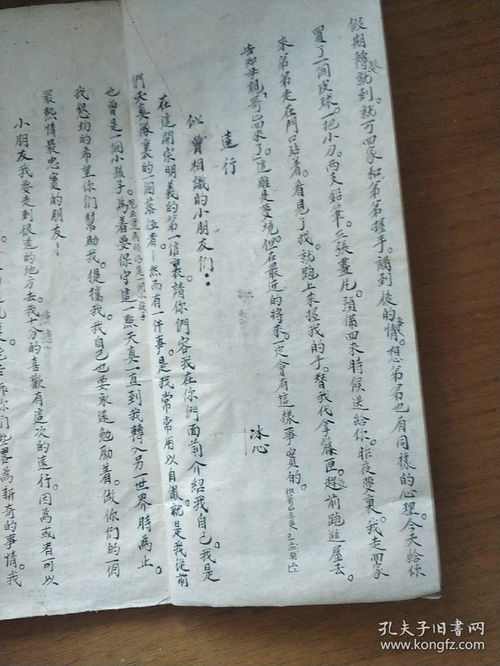 假期轉眼就到。就可回家和弟弟握手。關別後的情。想弟弟也有同樣的心理。今天給你
買了一個皮球。一把小刀。兩支鉛筆。三張畫片。預備回來時候送給你。昨夜夢裏。我走回家
來弟弟走在門口站着。看見了我。就跑上來握我的手。替我代拿籐匣。趕前跑進屋去。
告知母親「哥哥回來了」這雖是夢境。但在最近的將來。定會有這樣事實的。
遠行
冰心
似曾相識的小朋友們：
在這開宗明義的第一信裏。請你們容我在你們面前介紹我自己。我是
們天真隊裏的一個落伍者—然而有一件事。是我常常用以自傲。就是我從前
也曾是一個小孩子。為着要保守這一點天真一直到我轉入另一世界時為止。
我懇切的希望你們幫助我。提攜我。我自己也要永遠勉勵着。做你們的一個
最熱情最忠實的朋友！
小朋友我要走到很遠的地方去。我十分的喜歡有這次的遠行。因為或者可以
為新奇的事情。我
孔夫子旧书网
www.kongfz.com